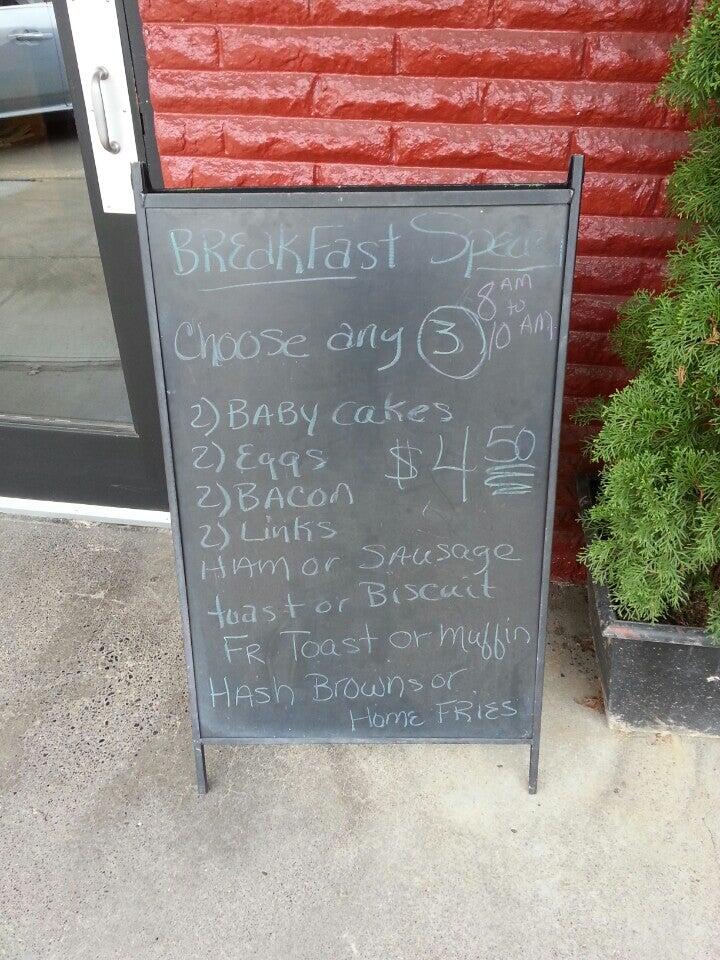 BREAKFast Special
8 AM
to
10 AM
Choose any 3
2) BABY cakes
2) Eggs
$4 50
2) BACON
2) Links
HAM or SAUsage
toast or Biscuit
FR Toast or Muffin
HASH Browns or
Home FRIES